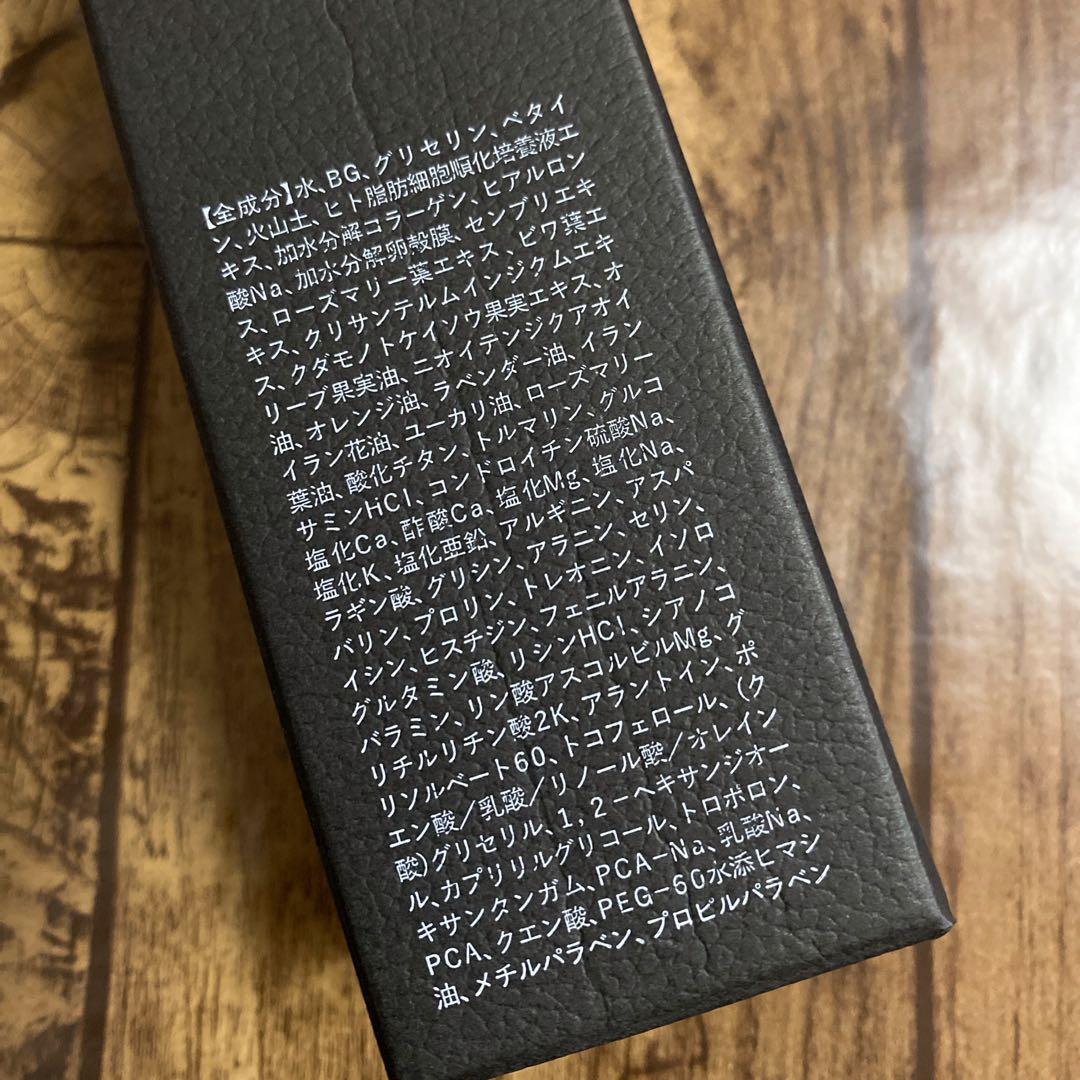 【全成分】水、BG、グリセリン、ベタイ
ン、火山土、ヒト脂肪細胞順化培養液エ
キス、加水分解コラーゲン、ヒアルロン
酸Na、加水分解卵殻膜、センブリエキ
ス、ローズマリー葉エキス、ビワ葉エ
キス、クリサンテルムインジクムエキ
ス、クダモノトケイソウ果実エキス、オ
リーブ果実油、ニオイテンジクアオイ
油、オレンジ油、ラベンダー油、イラン
イラン花油、ユーカリ油、ローズマリー
葉油、酸化チタン、トルマリン、グルコ
サミンHCl、コンドロイチン硫酸Na、
塩化Ca、酢酸Ca、塩化Mg、塩化Na、
塩化K、塩化亜鉛、アルギニン、アスパ
ラギン酸、グリシン、アラニン、セリン、
バリン、プロリン、トレオニン、イソロ
イシン、ヒスチジン、フェニルアラニン、
グルタミン酸、リシンHCl、シアノコ
バラミン、リン酸アスコルビルMg、グ
リチルリチン酸2K、アラントイン、ポ
リソルベート60、トコフェロール、(ク
エン酸/乳酸/リノール酸/オレイン
酸)グリセリル、1,2-ヘキサンジオー
ル、カプリリルグリコール、トロポロン、
キサンタンガム、PCA-Na、乳酸Na、
PCA、クエン酸、PEG-60水添ヒマシ
油、メチルパラベン、プロピルパラベン